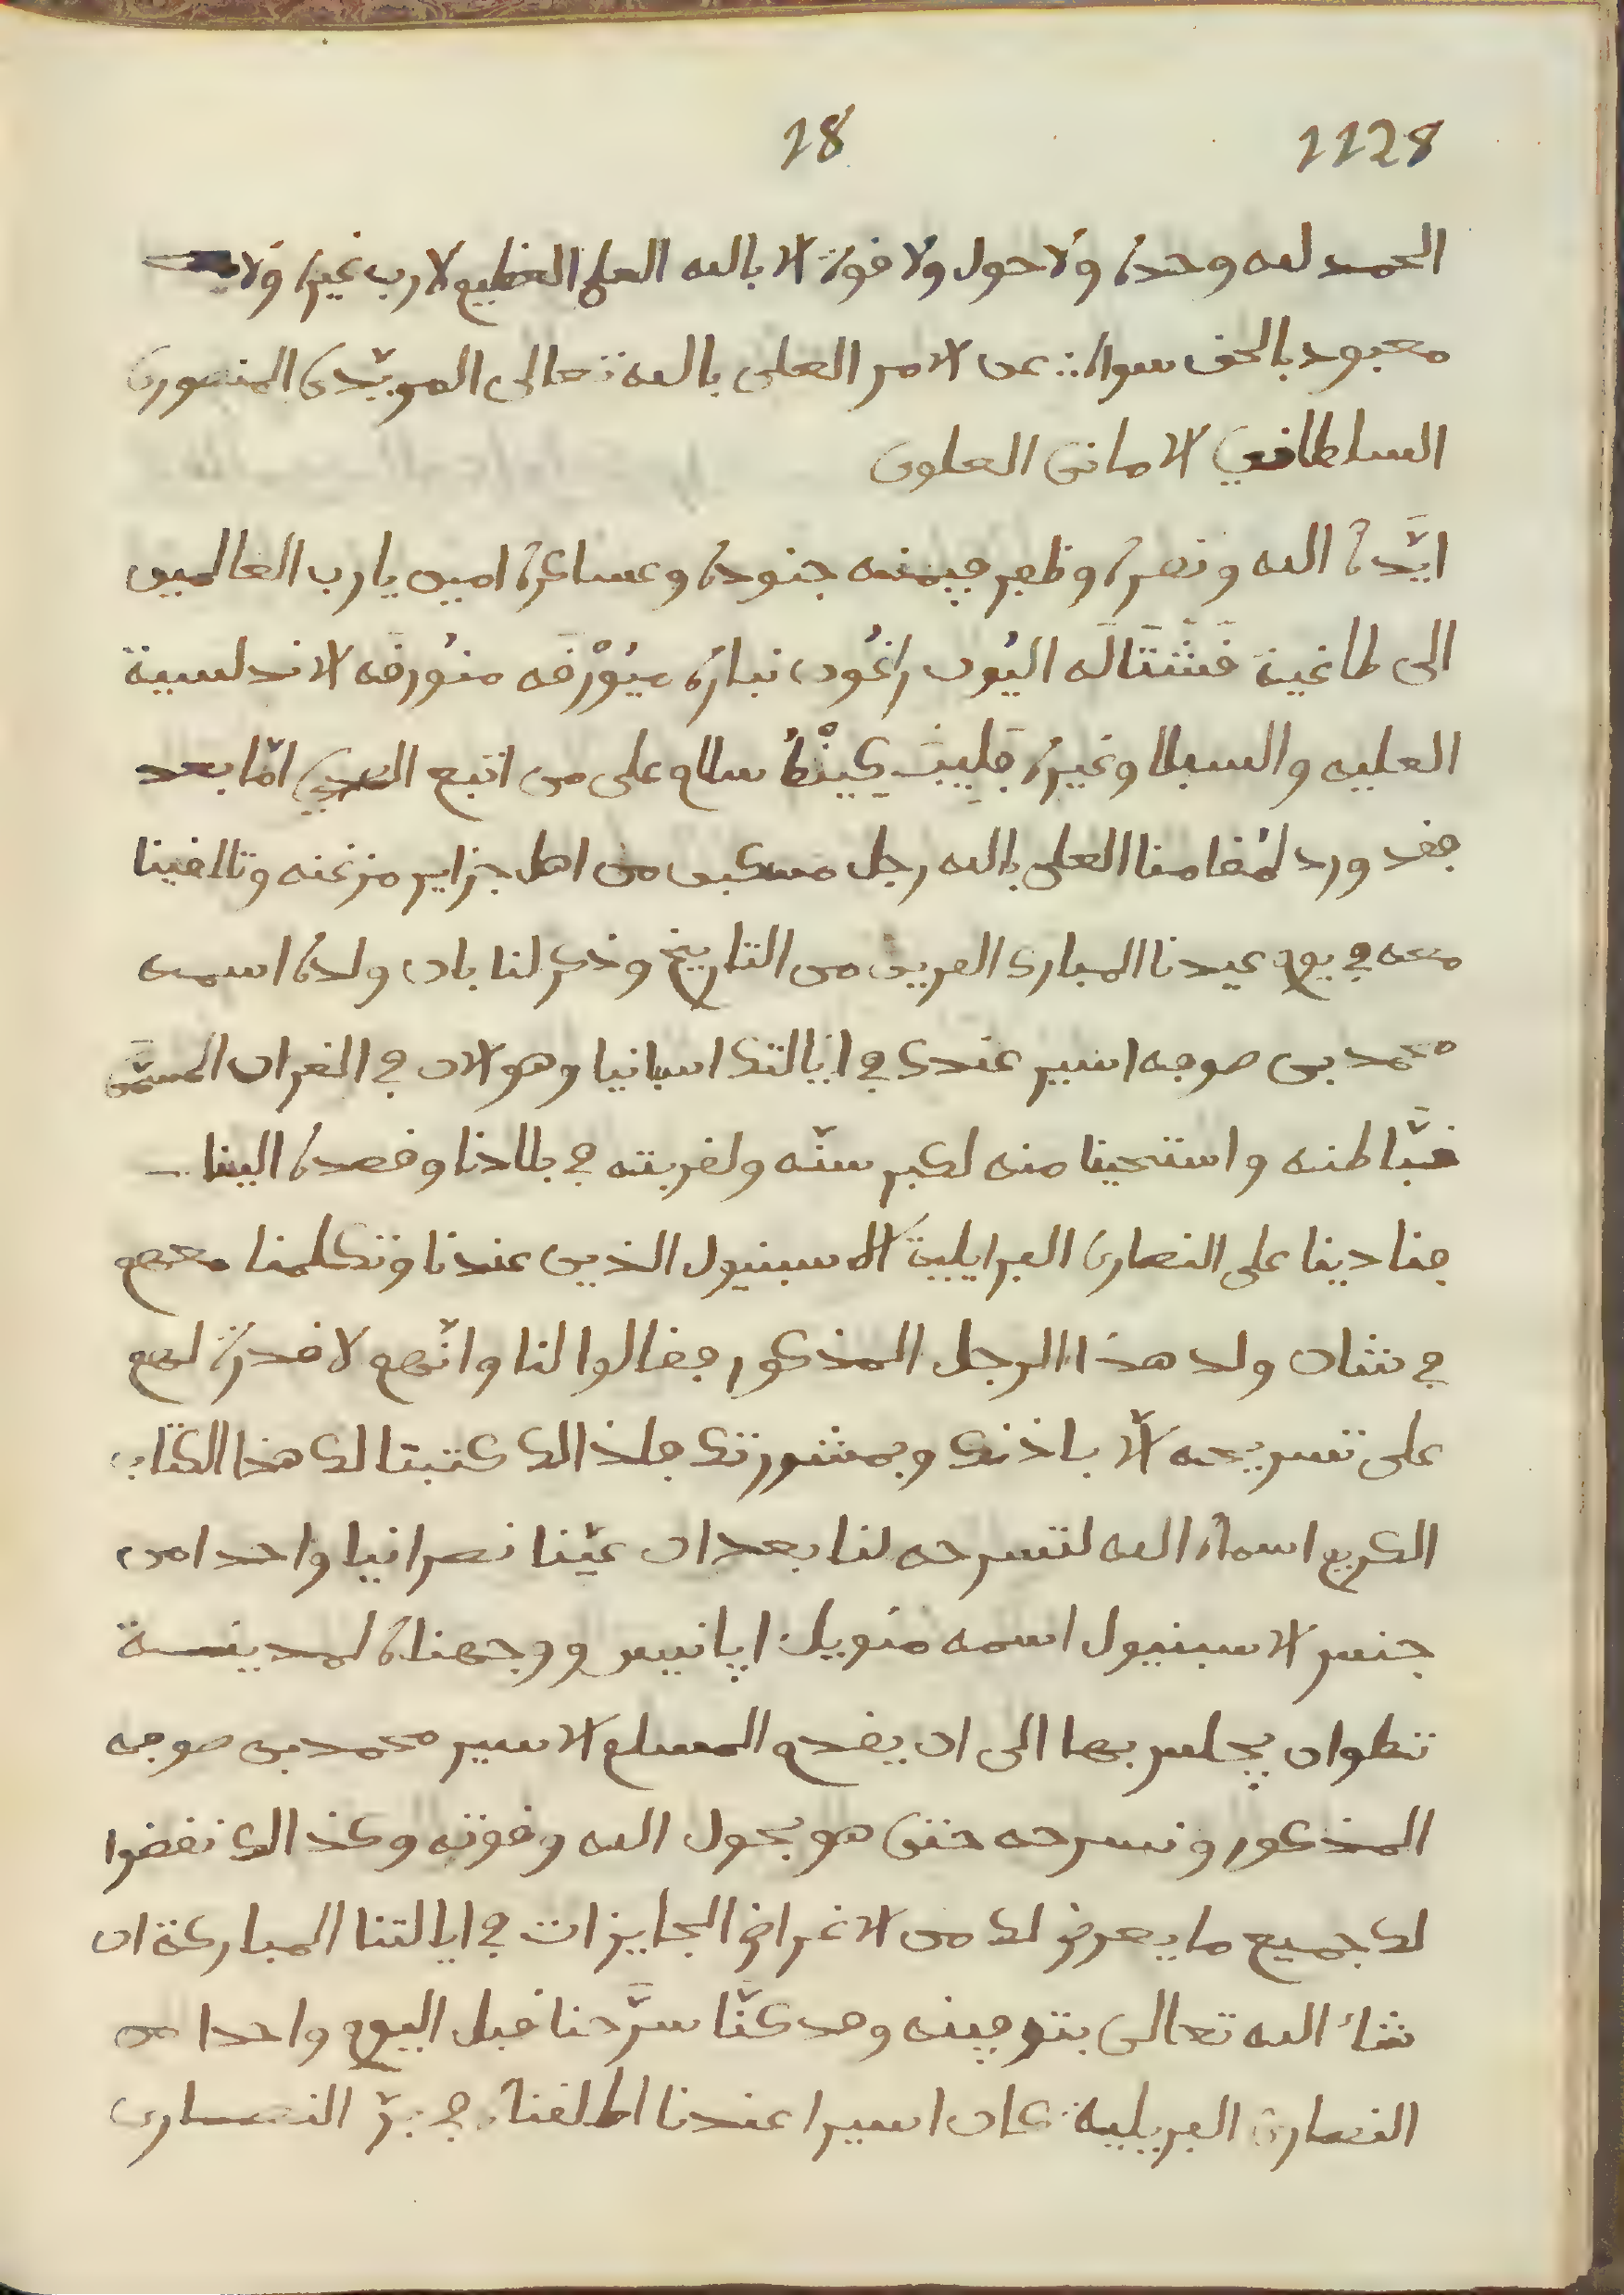 1128 18
الحمد لله وحده ولا حول ولا قوة الا بالله العلى العظيم لا رب غيره ولا
معبود بالحق سواه عن الامر العلى بالله تعالى المويّدى المنصورى
السلطانى الامانى العلوى
ايّده الله ونصره وظفر بمنه جنوده وعساكره امين يارب العالمين
الى طاغية قَشْتَالَه اليُون راغُون نباره مَيُوْرْقَه منُورقَه الاندلسية
والسبلا وغيره فِلِيبَ كِينْطُ سلام على من اتبع الهدى امّا بعد
فقد ورد لمُقامنا العلى بالله رجل مسكين من اهل جزاير مزغنه وتلاقينا
معه في يوم عيدنا المبارك القريب من التاريخ وذكر لنا بان ولده اسمه
محمد بن صوجه اسير عندك في ايالتك اسبانيا وهو الان في الغراب المسمَّى
قبّاطنه واستحينا منه لكبر سنّه ولغربته في بلادنا وقصده الينا
فنادينا على النصارى الفرايلية الاسبنيول الذين عندنا وتكلمنا معهم
في شان ولد هذا الرجل المذكور فقالوا لنا وانّهم لا قدرة لهم
على تسريحه الّا باذنك وبمشورتك فلذالك كتبنا لك هذا الكتاب
الكريم اسماه الله لتسرحه لنا بعد ان عيّنا نصرانيا واحدا من
جنس الاسبنيول اسمه منويل ايانييس ووجهناه لمدينة
تطوان يجلس بها الى ان يقدم المسلم الاسير محمد بن صوجه
المذكور ونسرحه حتى هو بحول الله وقوته وكذالك نقضوا
لك جميع ما يعرض لك من الاغراض الجايزات في ايالتنا المباركة ان
شاء الله تعالى بتوفيقه وقد كنّا سرَّحنا قبل اليوم واحدا من
النصارى الفريلية كان اسيرا عندنا اطلقناه في برّ النصارى